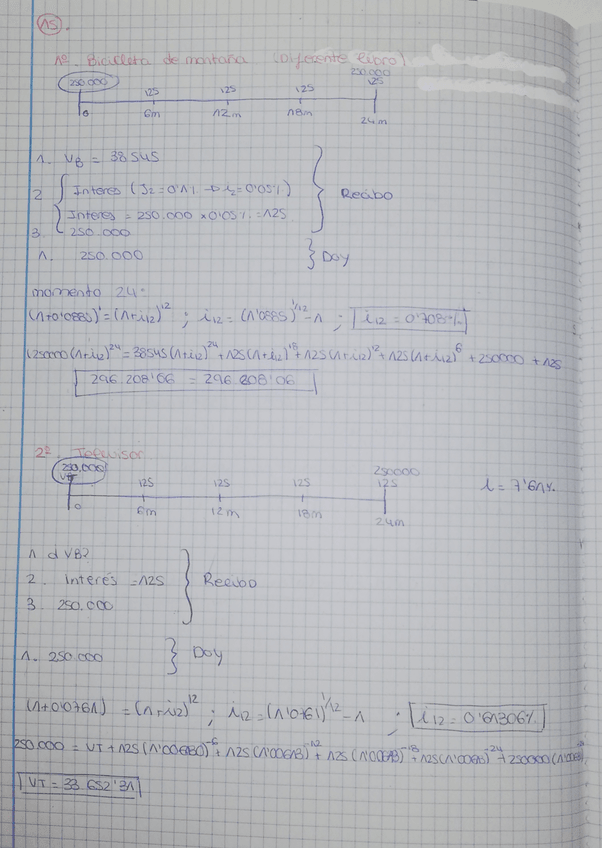 15.
1º. Bicicleta de montaña (Diferente libro)
250.000
250.000 125 125 125 125
0 6m 12m 18m 24m
1. VB = 38545
2 Interés (J2=0'1% → i2=0'05%)
Interés = 250.000 x 0'05% = 125
3. 250.000
Recibo
1. 250.000 Doy
momento 24:
(1+0'0885)¹=(1+i12)¹²; i12=(1'0885)^1/12-1; i12=0'708%
(250000(1+i12)²⁴=38545(1+i12)²⁴+125(1+i12)¹⁸+125(1+i12)¹²+125(1+i12)⁶+250000+125
296.208'06 = 296.208'06
2º. Televisor
250.000 250000
VT 125 125 125 125 i=7'61%
0 6m 12m 18m 24m
1 d VB?
2. Interés = 125 Recibo
3. 250.000
1. 250.000 Doy
(1+0'0761) = (1+i12)¹²; i12=(1'0761)^1/12-1; i12=0'61306%
250.000 = VT+125(1'00613)⁻⁶+125(1'00613)⁻¹²+125(1'00613)⁻¹⁸+125(1'00613)⁻²⁴+250000(1'00613)
VT = 33.652'31